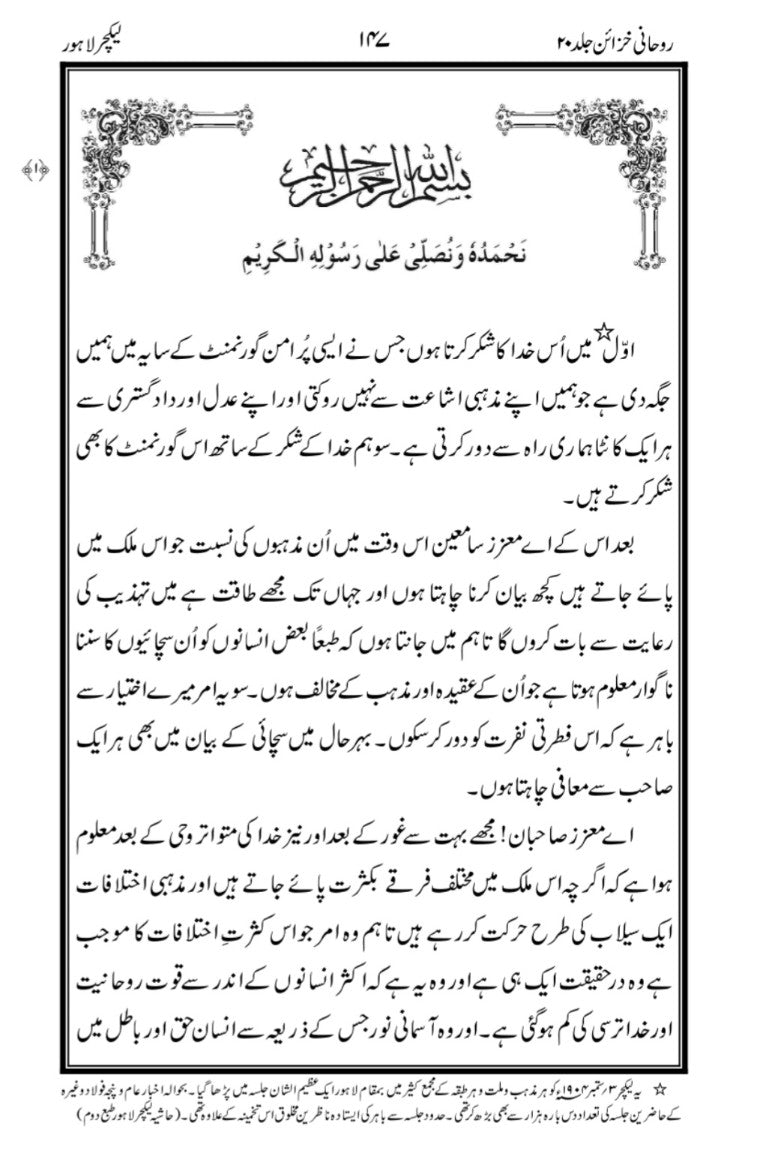 روحانی خزائن جلد ۲۰
۱۴۷
لیکچر لاہور
﴿۱﴾
بسم اللہ الرحمن الرحیم
نَحْمَدُہٗ وَنُصَلِّیْ عَلٰی رَسُوْلِہِ الْکَرِیْمِ
اوّل☆ میں اُس خدا کا شکر کرتا ہوں جس نے ایسی پُر امن گورنمنٹ کے سایہ میں ہمیں
جگہ دی ہے جو ہمیں اپنے مذہبی اشاعت سے نہیں روکتی اور اپنے عدل اور داد گستری سے
ہر ایک کانٹا ہماری راہ سے دور کرتی ہے۔ سو ہم خدا کے شکر کے ساتھ اس گورنمنٹ کا بھی
شکر کرتے ہیں۔
بعد اس کے اے معزز سامعین اس وقت میں اُن مذہبوں کی نسبت جو اس ملک میں
پائے جاتے ہیں کچھ بیان کرنا چاہتا ہوں اور جہاں تک مجھے طاقت ہے میں تہذیب کی
رعایت سے بات کروں گا تاہم میں جانتا ہوں کہ طبعًا بعض انسانوں کو اُن سچائیوں کا سننا
ناگوار معلوم ہوتا ہے جو اُن کے عقیدہ اور مذہب کے مخالف ہوں۔ سو یہ امر میرے اختیار سے
باہر ہے کہ اس فطرتی نفرت کو دور کر سکوں۔ بہر حال میں سچائی کے بیان میں بھی ہر ایک
صاحب سے معافی چاہتا ہوں۔
اے معزز صاحبان! مجھے بہت سے غور کے بعد اور نیز خدا کی متواتر وحی کے بعد معلوم
ہوا ہے کہ اگرچہ اس ملک میں مختلف فرقے بکثرت پائے جاتے ہیں اور مذہبی اختلافات
ایک سیلاب کی طرح حرکت کر رہے ہیں تاہم وہ امر جو اس کثرتِ اختلافات کا موجب
ہے وہ درحقیقت ایک ہی ہے اور وہ یہ ہے کہ اکثر انسانوں کے اندر سے قوت روحانیت
اور خدا ترسی کی کم ہو گئی ہے۔ اور وہ آسمانی نور جس کے ذریعہ سے انسان حق اور باطل میں
☆ یہ لیکچر ۳؍ستمبر ۱۹۰۴ء کو ہر مذہب وملت و ہر طبقہ کے مجمع کثیر میں بمقام لاہور ایک عظیم الشان جلسہ میں پڑھا گیا۔ بحوالہ اخبار عام و پنجہ فولاد وغیرہ
کے حاضرین جلسہ کی تعداد دس بارہ ہزار سے بھی بڑھ کر تھی۔ حدود جلسہ سے باہر کی ایستادہ ناظرین مخلوق اس تخمینہ کے علاوہ تھی۔ (حاشیہ لیکچر لاہور طبع دوم)